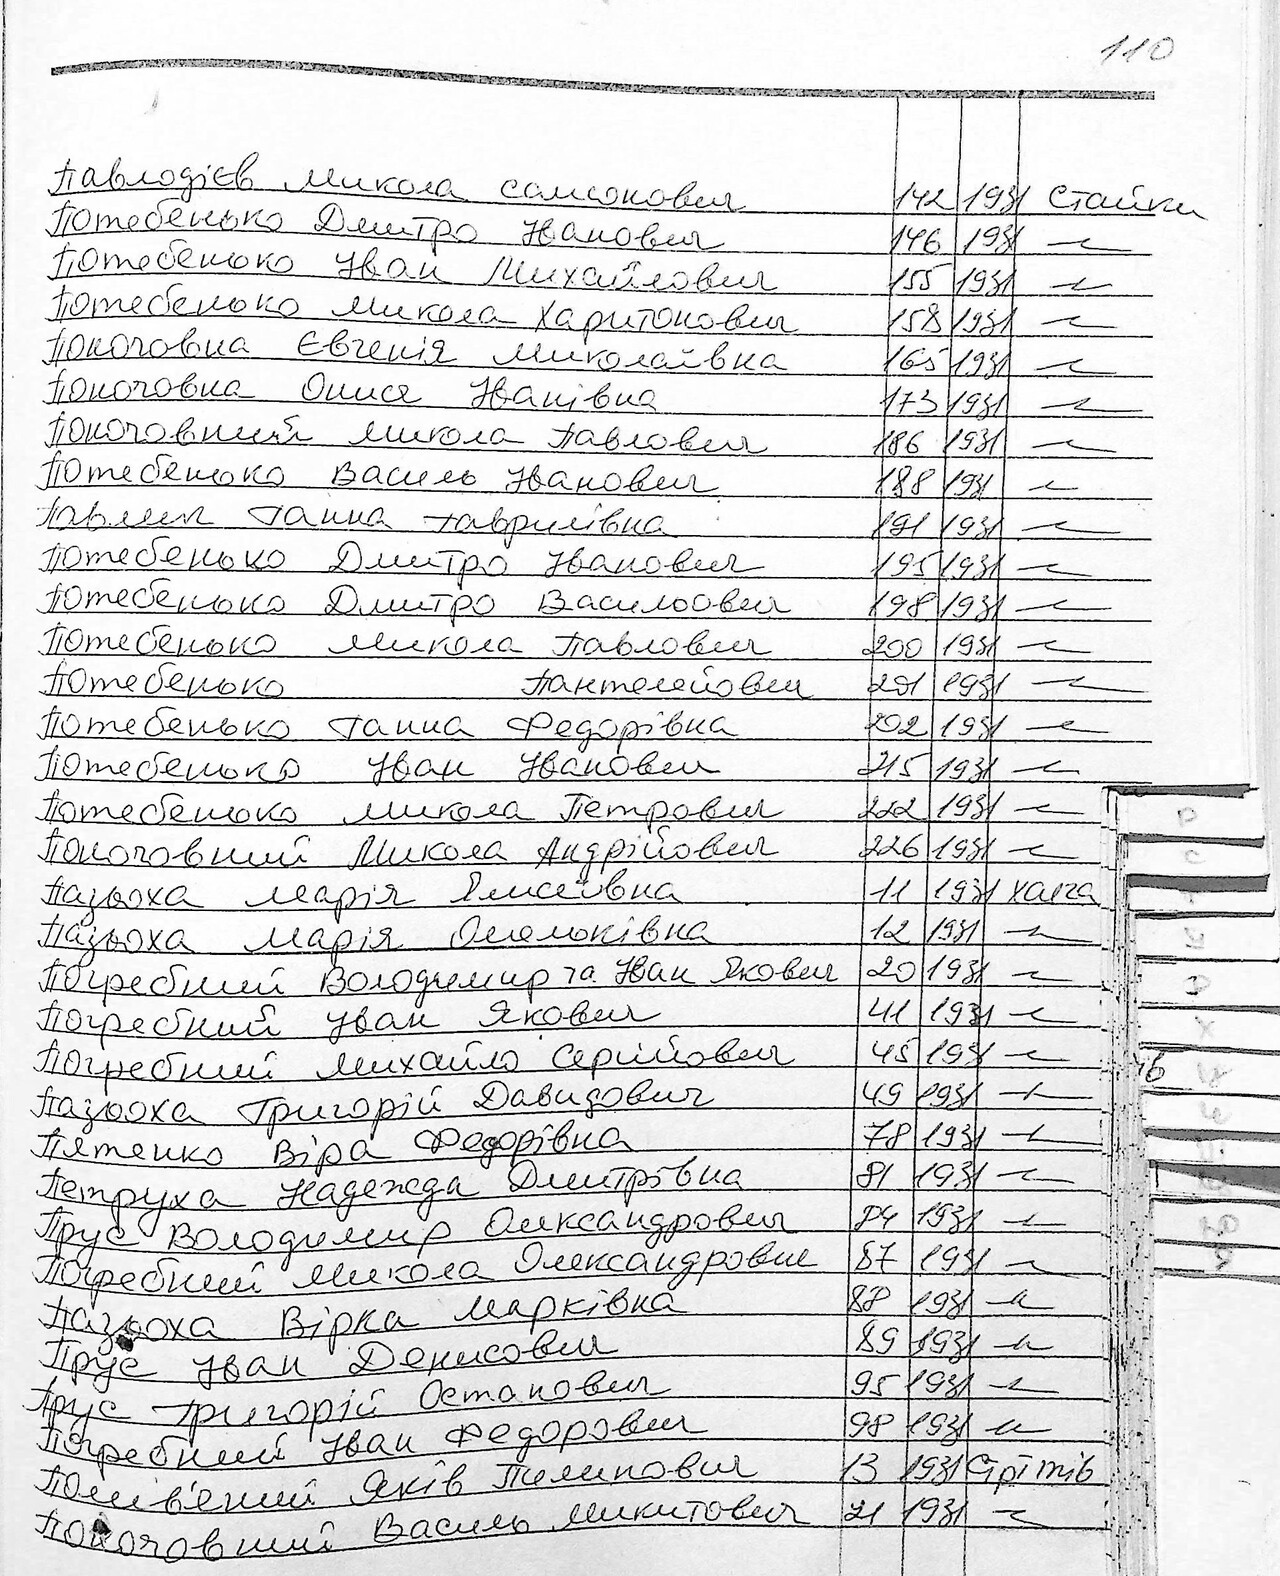 110
Павлодієв Микола Самсонович 142 1931 Стайки
Потебенько Дмитро Іванович 146 1931 —"—
Потебенько Іван Михайлович 155 1931 —"—
Потебенько Микола Харитонович 158 1931 —"—
Покочовна Євгенія Миколаївна 165 1931 —"—
Покочовна Онися Іванівна 173 1931 —"—
Покочовний Микола Павлович 186 1931 —"—
Потебенько Василь Іванович 188 1931 —"—
Ганна Гаврилівна 191 1931 —"—
Потебенько Дмитро Іванович 195 1931 —"—
Потебенько Дмитро Васильович 198 1931 —"—
Потебенько Микола Павлович 200 1931 —"—
Потебенько Пантелейович 201 1931 —"—
Потебенько Ганна Федорівна 202 1931 —"—
Потебенько Іван Іванович 215 1931 —"—
Потебенько Микола Петрович 222 1931 —"—
Покочовний Микола Андрійович 226 1931 —"—
Пазюха Марія Єлисеївна 11 1931 Халча
Пазюха Марія Омельківна 12 1931 —"—
Погребний Володимир та Іван Якович 20 1931 —"—
Погребний Іван Якович 41 1931 —"—
Погребний Михайло Сергійович 45 1931 —"—
Пазюха Григорій Давидович 49 1931 —"—
Пятенко Віра Федорівна 78 1931 —"—
Петруха Надежда Дмитрівна 81 1931 —"—
Прус Володимир Олександрович 84 1931 —"—
Погребний Микола Олександрович 87 1931 —"—
Пазюха Вірка Марківна 88 1931 —"—
Прус Іван Денисович 89 1931 —"—
Прус Григорій Остапович 95 1931 —"—
Погребний Іван Федорович 98 1931 —"—
Яків Пилипович 13 1931 Стрітів
Покочовний Василь Микитович 21 1931 —"—